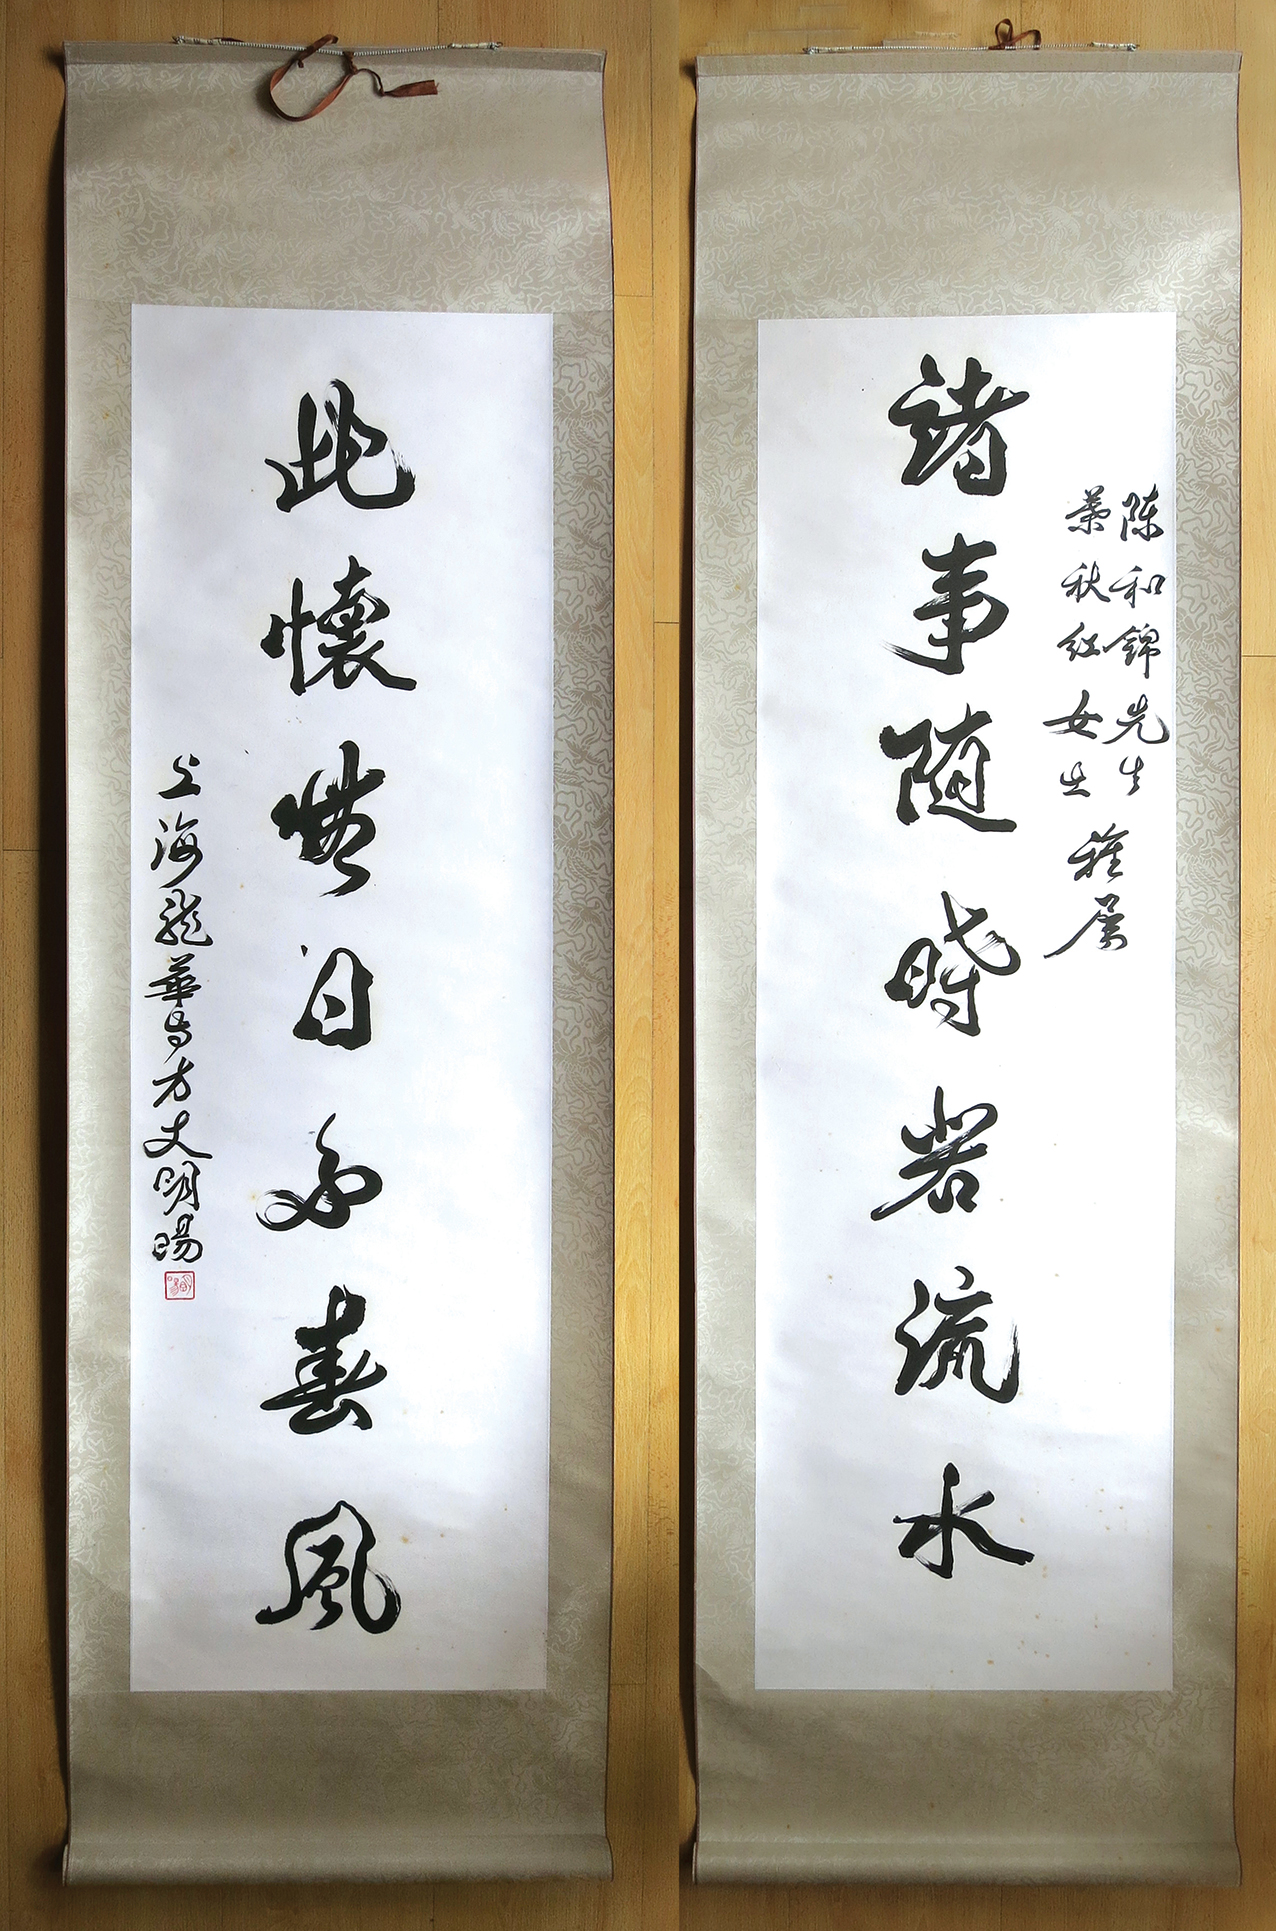 陈和錦先生
葉秋红女士
雅属
諸事隨時若流水
此懷無日不春風
上海龍華寺方丈明暘